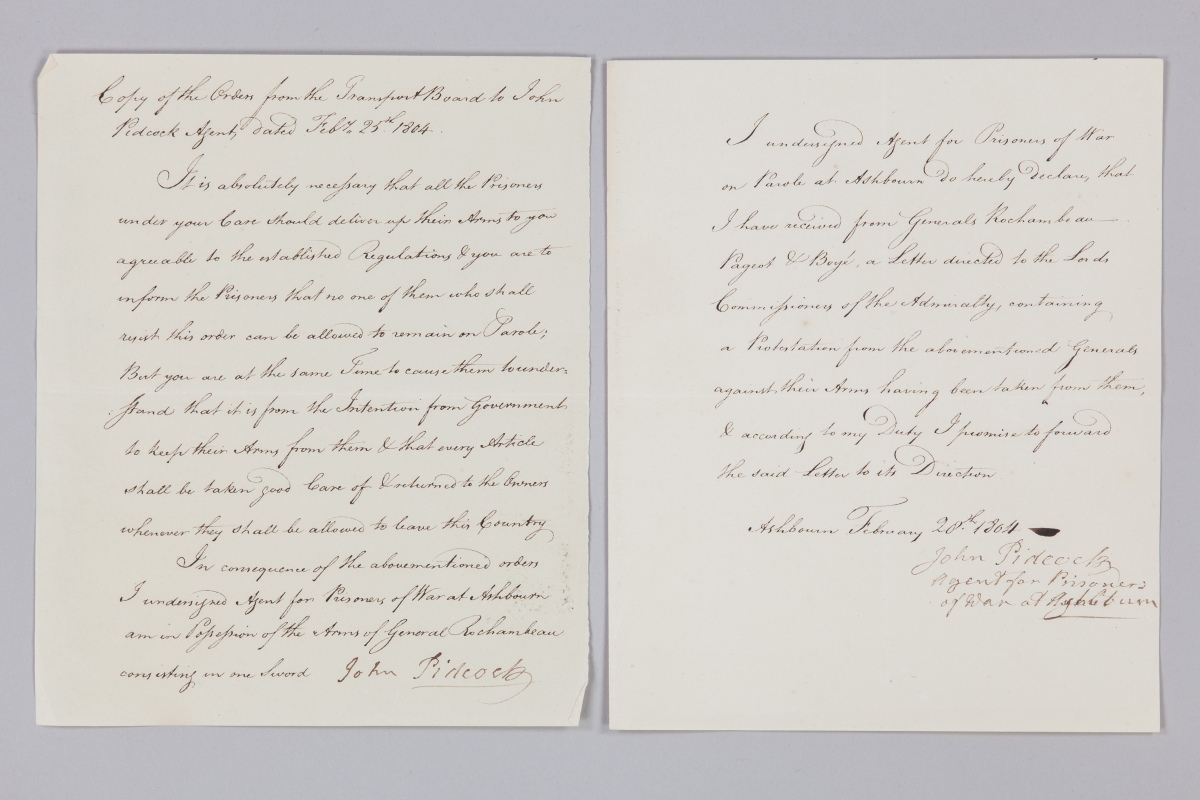 Copy of the Orders from the Transport Board to John
Pidcock Agent, dated Feby. 25th. 1804.
It is absolutely necessary that all the Prisoners
under your Care should deliver up their Arms to you
agreeable to the established Regulations & you are to
inform the Prisoners that no one of them who shall
resist this order can be allowed to remain on Parole;
But you are at the same Time to cause them to under=
:stand that it is from the Intention from Government
to keep their Arms from them & that every Article
shall be taken good Care of & returned to the Owners
whenever they shall be allowed to leave this Country
In consequence of the abovementioned orders
I undersigned Agent for Prisoners of War at Ashbourn
am in Possession of the Arms of General Rochambeau
consisting in one Sword John Pidcock
I undersigned Agent for Prisoners of War
on Parole at Ashbourn do hereby declare, that
I have received from Generals Rochambeau
Pageot & Boyé, a Letter directed to the Lords
Commissioners of the Admiralty, containing
a Protestation from the abovementioned Generals
against their Arms having been taken from them,
& according to my Duty I promise to forward
the said Letter to its Direction
Ashbourn February 28th. 1804
John Pidcock
Agent for Prisoners
of War at Ashburn